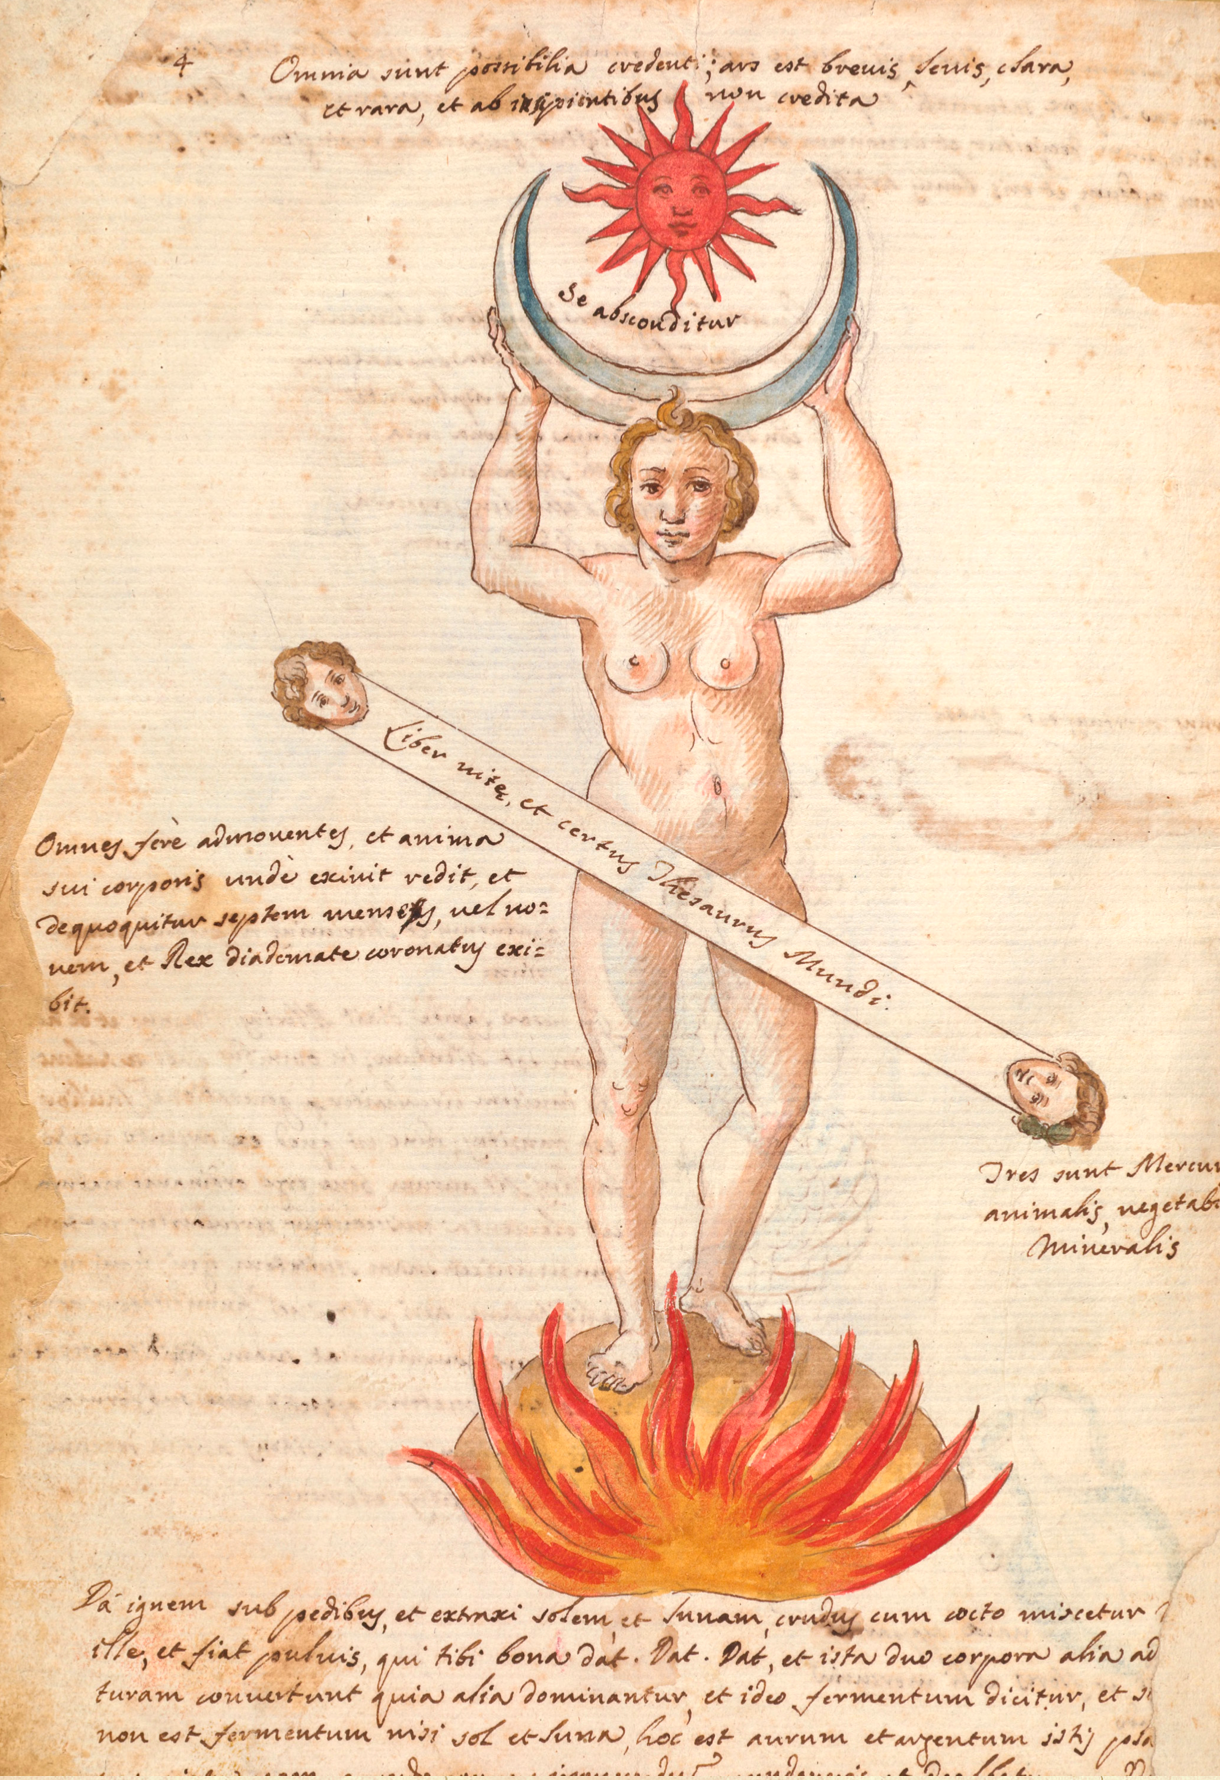 4
Omnia sunt possibilia credenti; ars est brevis, levis, clara,
et rara, et ab insipientibus non credita
Se absconditur
Liber vitę, et certus Thesaurus Mundi.
Omnes ferè admoventes, et anima
sui corporis undè exivit redit, et
dequoquitur septem menses, vel no=
vem, et Rex diademate coronatus exi=
bit.
Tres sunt Mercur
animalis, vegetab
Mineralis
Da ignem sub pedibus, et extraxi solem et lunam, crudus cum cocto miscetur
ille, et fiat pulvis, qui tibi bona dat. Dat. Dat, et ista duo corpora alia ad
turam convertunt quia alia dominantur, et ideo fermentum dicitur, et
non est fermentum nisi sol et luna, hoc est aurum et argentum istis